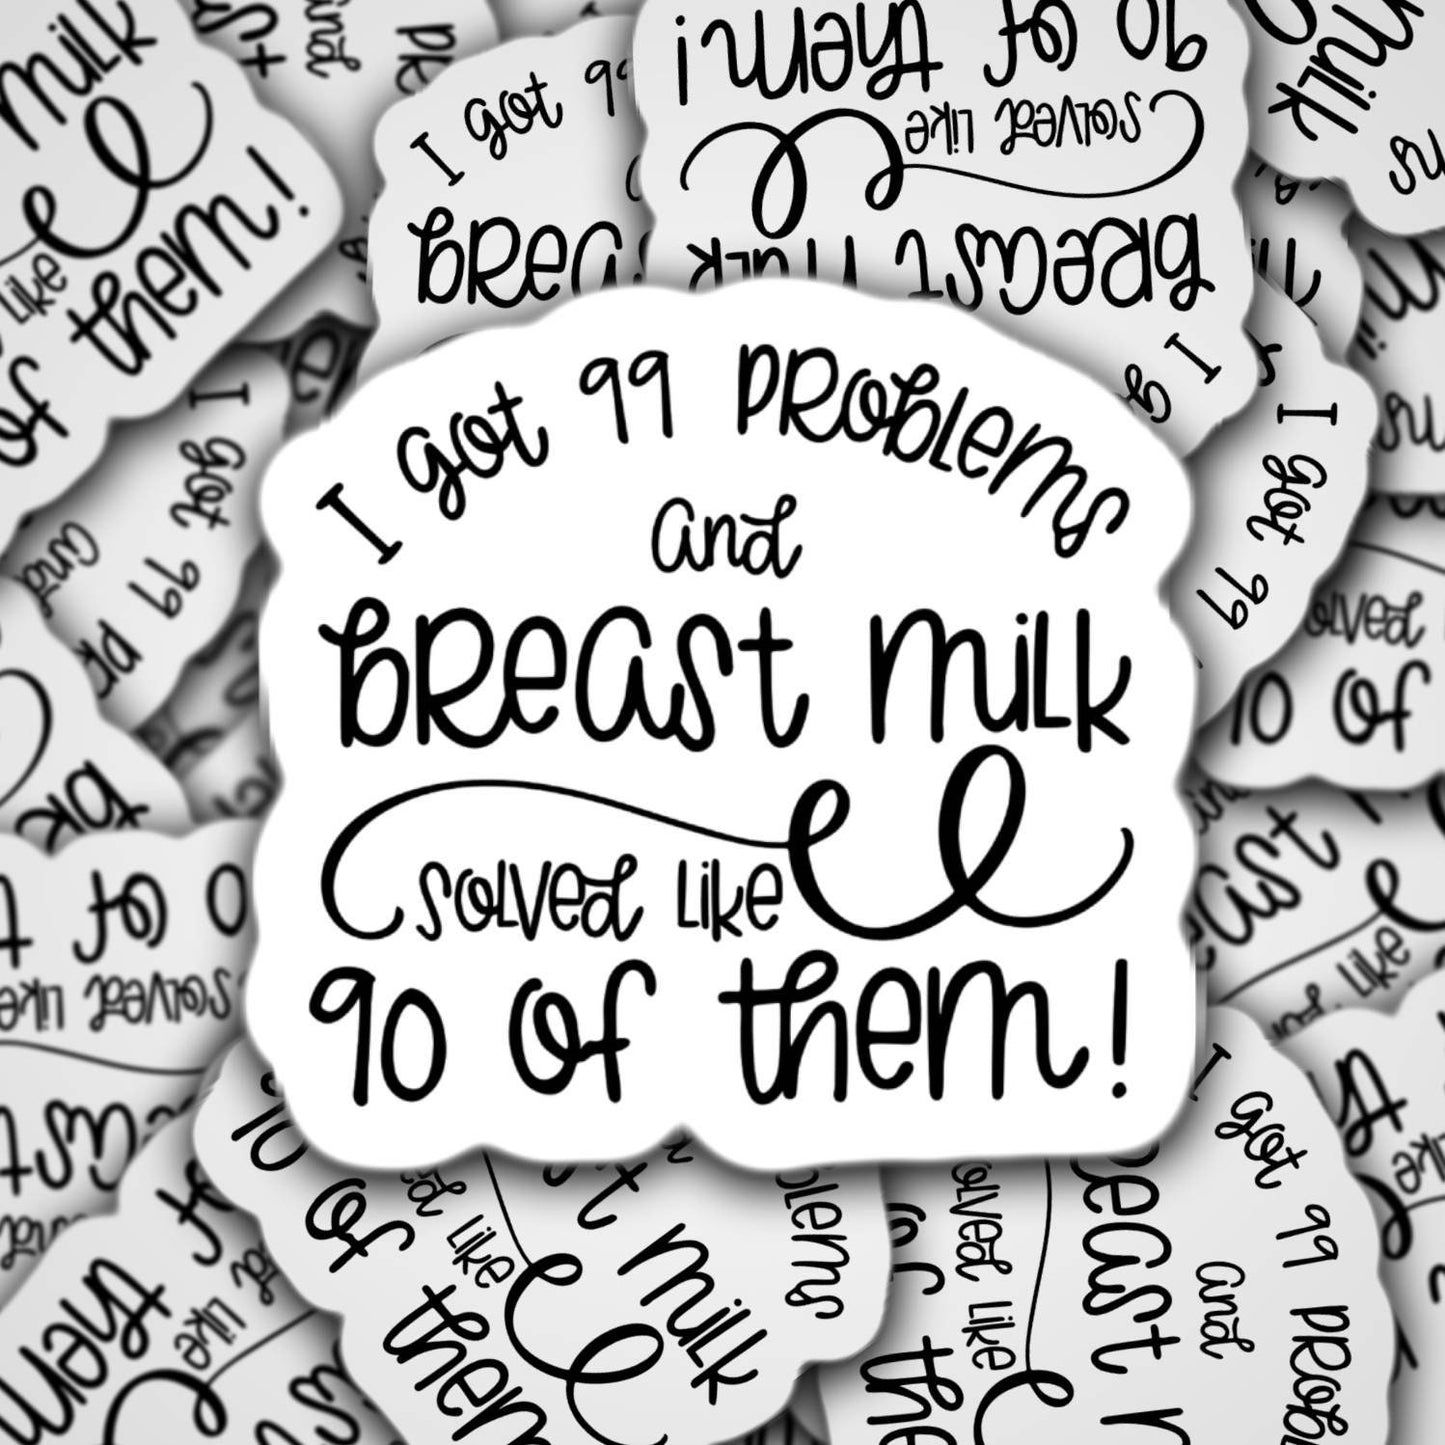 I got 99 problems
and
breast milk
solved like
90 of them!